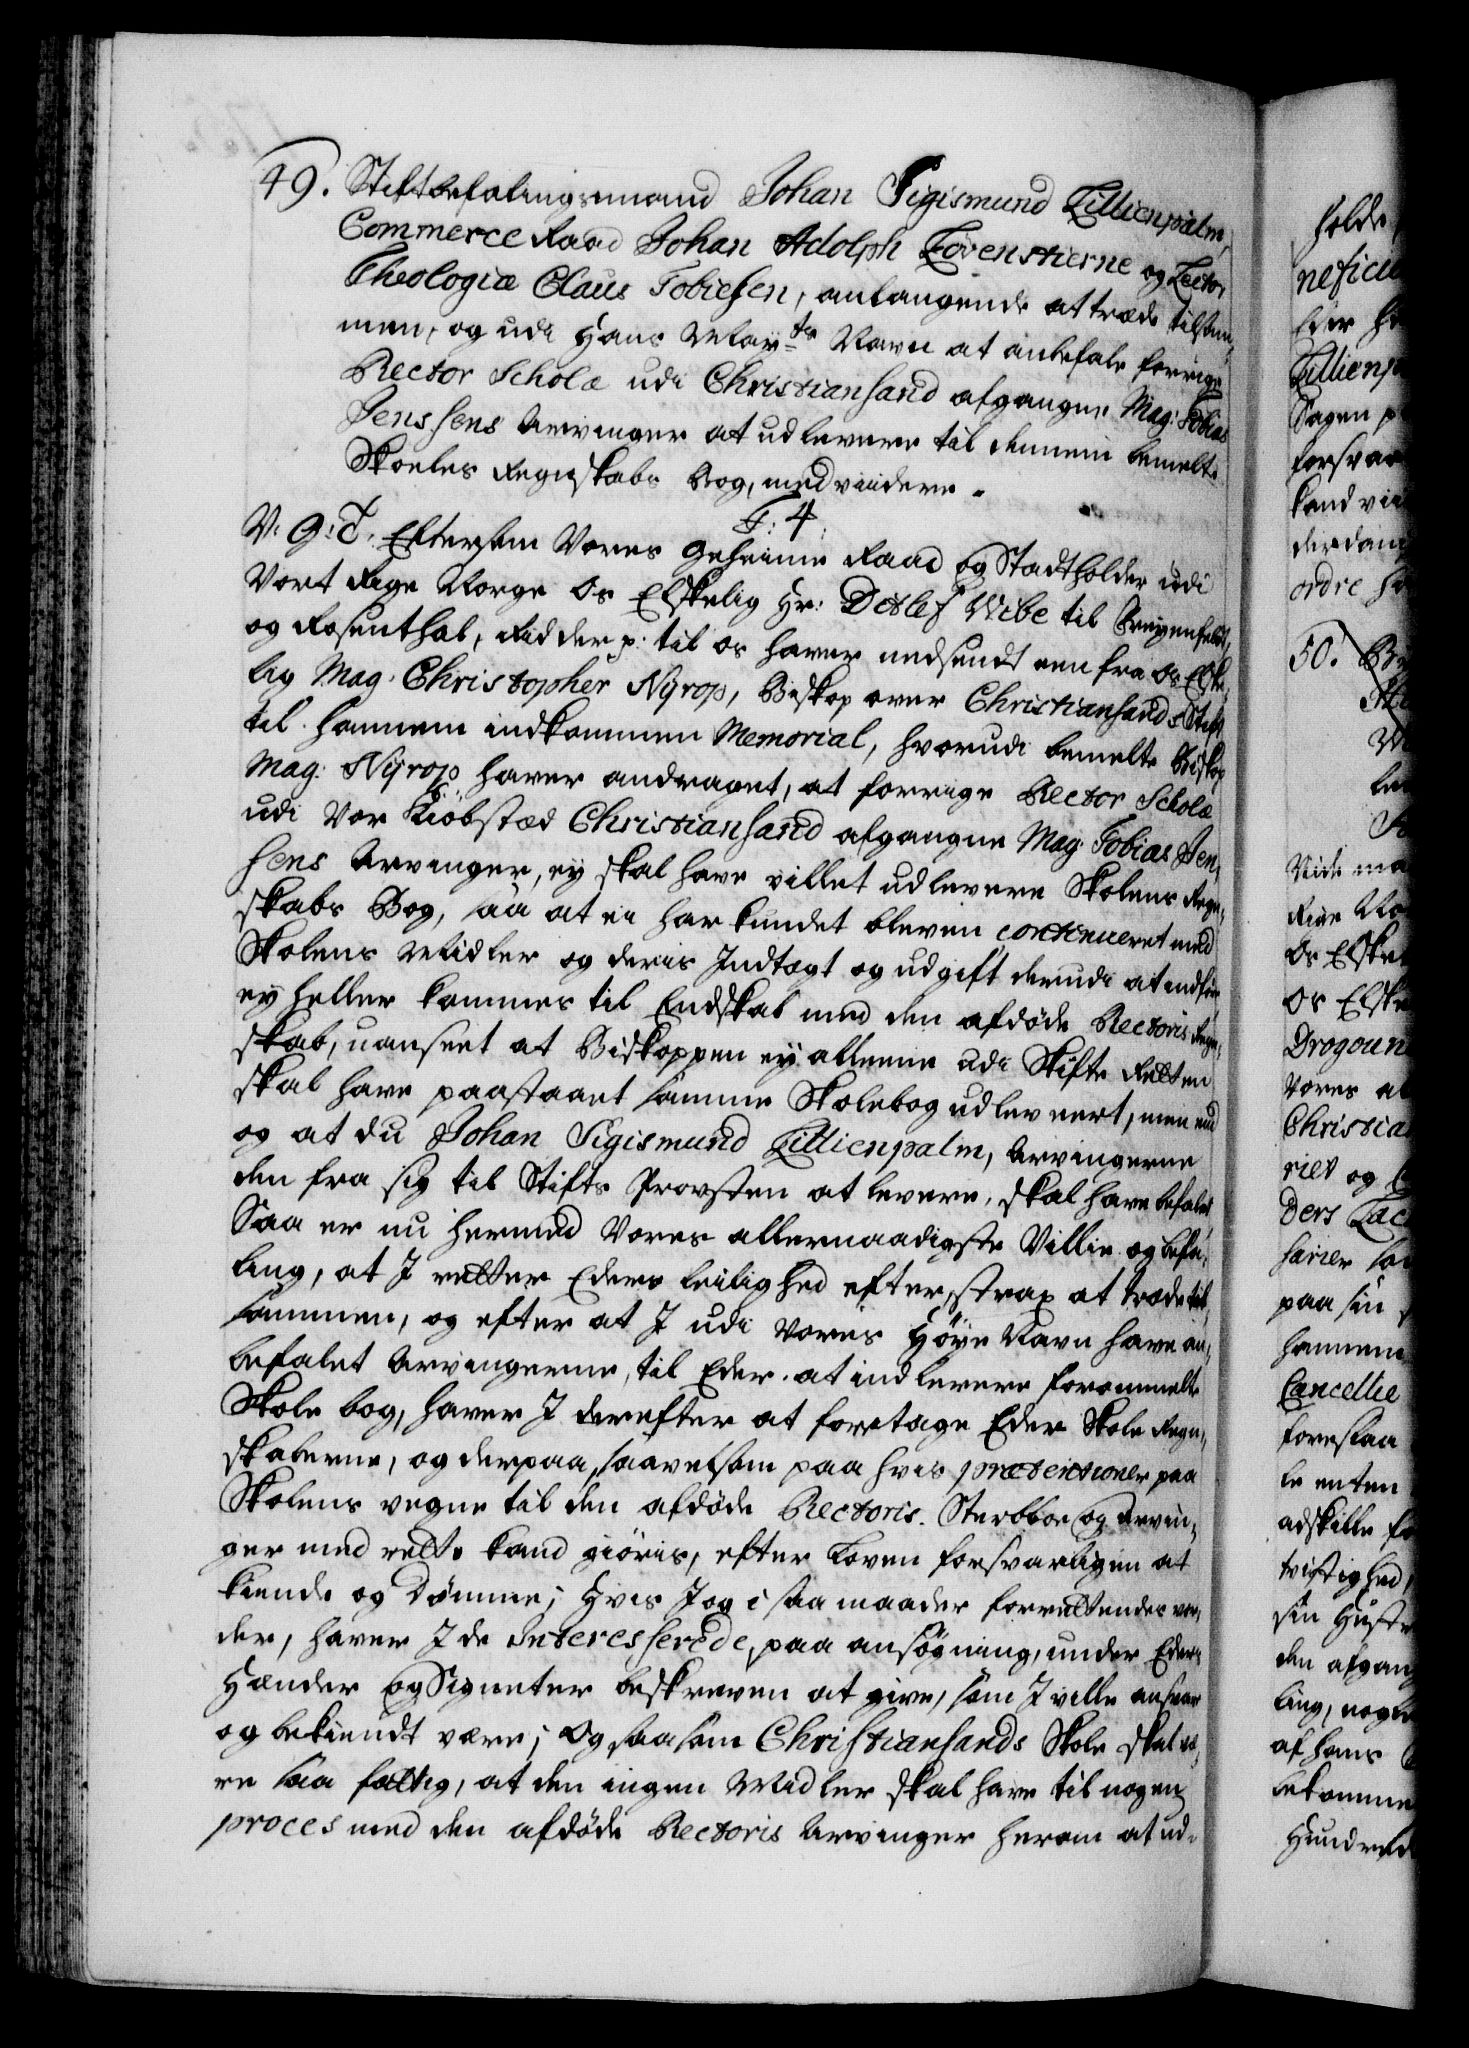 49. Stiftbefalingsmand Johan Sigismund Lillienpalm,
Commerce Raad Johan Adolph Lövenstierne og Lector
Theologiæ Claus Tobiesen, anlangende at træde tilsam-
men, og udi Hans May.ts Navn at anbefale forrige
Rector Scholæ udi Christiansand afgangne Mag: Tobias
Jenssens Arvinger at udlevere til dennem bemelte
Skoeles Regnskabs Bog, med viidere.
F: 4.
V: G: T. Eftersom Vores Geheime Raad og Stadtholder udi
Vort Rige Norge Os Elskelig Hr: Ditlef Wibe til Freyenfeldt,
og Rosenthal, Ridder p. til os haver nedsendt een fra Os Elske-
lig Mag. Christopher Nyrop, Biskop over Christiansands Stift
til hannem indkommen Memorial, hvorudi bemelte Biskop
Mag: Nyrop haver andraget, at forrige Rector Scholæ
udi Vor Kiöbstæd Christiansand afgangne Mag: Tobias Jen-
sens Arvinger, ey skal have villet udlevere Skolens Regn-
skabs Bog, saa at ei har kundet bleven continueret med
Skolens Midler og deris Indtægt og udgift derudi at indföre
ey heller kommes til Endskab med den afdöde Rectoris Regn-
skab, uanseet at Biskoppen ey alleene udi Skifte Retten
skal have paastaaet samme Skolebog udleveert, men end
og at du Johan Sigismund Lillienpalm, Arvingerne
den fra sig til Stifts Provsten at levere, skal have befalet
Saa er nu hermed Vores allernaadigste Villie og befa-
ling, at I retter Eders leilighed efter, strax at træde til-
sammen, og efter at I udi Voris Höye Navn have an-
befalet Arvingerne, til Eder at indlevere forommelte
Skole bog, haver I derefter at foretage Eder Skole Regn-
skaberne, og derpaa, saavelsom paa hvis prætentioner paa
Skolens vegne til den afdöde Rectoris Sterbboe og Arvin-
ger med rette kand giöris, efter Loven forsvarligen at
kiende og Dömme; Hvis I og i saa maader forrettendes vor-
der, haver I de Interesserede, paa ansögning, under Eders
Hænder og Signeter beskreven at give, som I ville ansvare
og bekiendt være; Og saasom Christiansands Skole skal væ-
re saa fattig, at den ingen Midler skal have til nogen
proces med den afdöde Rectoris Arvinger herom at ud-
holde
neficiu
Eder
Lillienp
Sagen
forsvar
kand vii
ordre
50.
Vide ma
Rige No
Os Elske
Os Elske
Drogoun
Vores al
Christia
riet og
ders Lac
paa sin
hannem
Cancellie
forestaa
le enten
adskille
tvistighed,
sin Hustr
den afgan
ling, nogle
af hans
bekomme
Hundrede